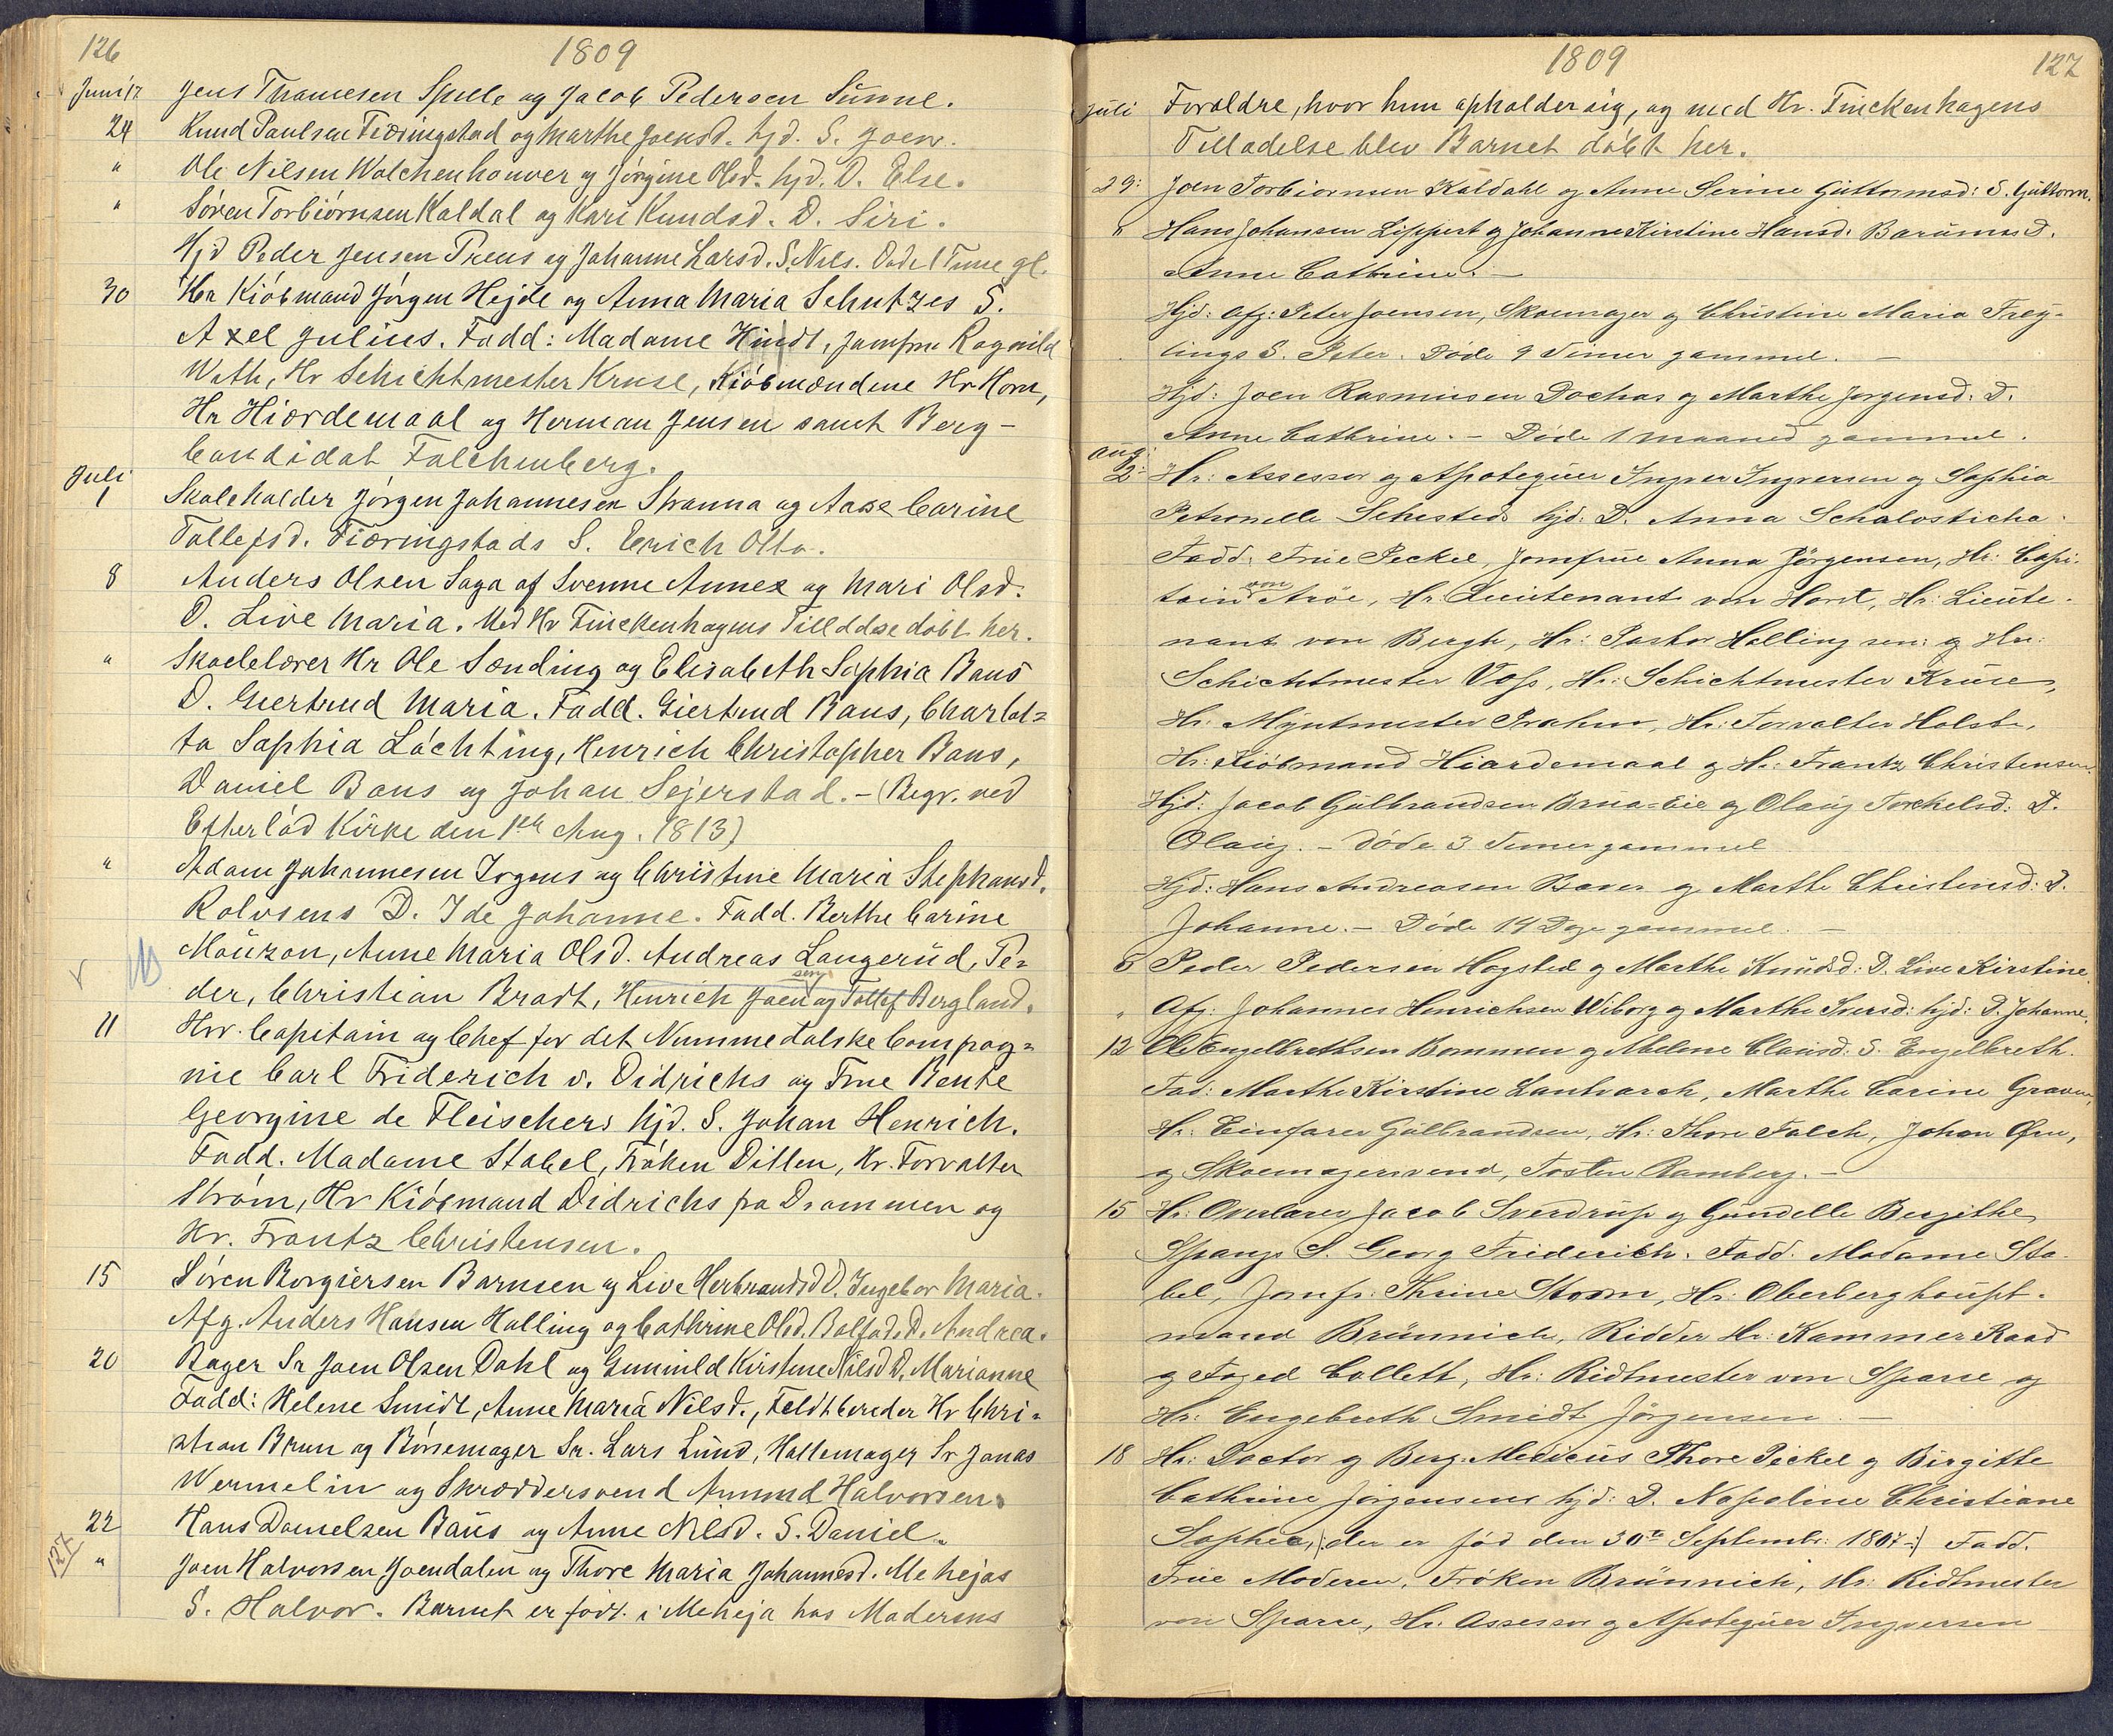 126
1809
Juni 17 Jens Thomesen Spelle og Jacob Pedersen Sunne.
24 Knud Paulsen Fieringstad og Marthe Joensd. hjd. S. Joen.
" Ole Nilsen Walchenhouwer og Jørgine Olsd. hjd. D. Else.
" Søren Torbiørnsen Kaldal og Kari Knudsd. D. Siri.
Hjd Peder Jensen Preus og Johanne Larsd. S. Nils. Død 1 Time gl.
30 Hr Kiøbmand Jørgen Hejde og Anna Maria Schutzes S.
Axel Julius. Fadd: Madame Hindt, Jomfru Ragnild
With, Hr Schichtmester Kruse, Kiøbmændene Hr Horn,
Hr Hiordemaal og Herman Jensen samt Berg-
Candidat Falchenberg.
Juli
1 Skoleholder Jørgen Johannesen Stranna og Aase Carine
Tollefsd. Fiæringstads S. Erich Otto.
8 Anders Olsen Saga af Svenne Annex og Mari Olsd.
D. Live Maria. Med Hr Finckenhagens Tilladelse døbt her.
" Skoelelærer Hr Ole Sending og Elisabeth Sophia Baus
D. Giertrud Maria. Fadd. Giertrud Baus, Charlot=
ta Sophia Lóchting, Henrich Christopher Baus,
Daniel Baus og Johan Sejerstad. - (Begr. ved
Efterlód Kirke den 1ste Aug. 1813)
" Adam Johannesen Irgens og Christine Maria Stephansd.
Rolvsens D. Ide Johanne. Fadd. Berthe Carine
Móuzon, Anne Maria Olsd. Andreas Langerúd, Pe=
der, Christian Bradt, Henrich Joensen og Tollef Bergland.
11 Hrr. Capitain og Chef for det Nummedalske Compag=
nie Carl Friderich v. Didrichs og Frue Bente
Georgine de Fleischers hjd. S. Johan Henrich.
Fadd. Madame Stabel, Frøken Ditten, Hr. Forvalter
Strøm, Hr Kiøbmand Didrichs fra Drammen og
Hr. Frantz Christensen.
15 Søren Borgiersen Barnsen og Live Herbrandsd D. Ingebor Maria.
Afg. Anders Hansen Halling og Cathrine Olsd. Bolfod. D. Andrea.
20 Bager Sr Joen Olsen Dahl og Gunnild Kirstine Nilsd D. Marianne
Fadd: Helene Smidt, Anne Maria Nilsd., Feldtbereder Hr Chri=
stian Brun og Børsemager Sr. Lars Lúnd, Hattemager Sr Jonas
Wermelin og Skræddersvend Amund Halvorsen.
22 Hans Danielsen Baus og Anne Nilsd. S. Daniel.
" Joen Halvorsen Joendalen og Thore Maria Johannesd. Mehejas
127
S. Halvor. Barnet er født i Meheja hos Moderens
1809
127
Juli Forældre, hvor hun opholder sig, og med Hr. Finckenhagens
Tilladelse blev Barnet døbt her.
29: Joen Torbiørnsen Kaldahl og Anne Serine Guttormsd: S. Guttorm.
" Hans Johansen Lippert og Johanne Kirstine Hansd. Barúms D.
Anne Cathrine. -
Hjd: Afg: Peter Joensen, Skoemager og Christine Maria Frey-
tings S. Peter. Døde 9 Timer gammel. -
Hjd: Joen Rasmusen Dochas og Marthe Jørgensd. D.
Anne Cathrine. - Døde 1 maaned gammel.
Aug:
2: Hr: Assessor og Apotequer Ingver Ingversen og Sophia
Petronelle Schesteds hjd. D. Anna Scholasticha.
Fadd. Frue Peckel, Jomfrue Anna Jörgensen, Hr: Capi-
tain von Aröe, Hr: Lieutenant von Horst, Hr: Lieute-
nant von Bergh, Hr: Pastor Halling sen: og Hr:
Schichtmester Voss, Hr: Schichtmester Kruse,
Hr: Myntmester Prahm, Hr: Forvalter Holst,
Hr: Kiöbmand Hiardemaal og Hr: Frantz Christensen.
Hjd: Jacob Gulbrandsen Brua-Eie og Olaug Torkelsd: D.
Olaug. - døde 3 Timer gammel
Hjd: Hans Andreasen Baver og Marthe Christensd: D.
Johanne. - Døde 14 Dage gammel. -
6 Peder Pedersen Hogsted og Marthe Knudsd: D. Live Kirstine.
" Afg: Johannes Henrichsen Wiborg og Marthe Iversd: hjd: D. Johanne.
12 Ole Engelbrethsen Bommen og Malene Clausd. S. Engelbreth.
Fad: Marthe Kirstine Lantvarch, Marthe Carine Graven,
Hr: Einfarer Gulbrandsen, Hr: Thore Falch, Johan Örn,
og Skoemagersvend, Tosten Ramberg. -
15 Hr: Overlærer Jacob Sverdrup og Gundelle Bergithe
Spangs S. Georg Friderich. Fadd. Madame Sta-
bel, Jomfr: Thrine Storm, Hr: Oberberghaupt-
mand Brünnich, Ridder Hr: Kammer Raad
og Foged Collett, Hr: Ridtmester von Sparre og
Hr: Engebreth Smidt Jörgensen. -
18 Hr: Doctor og Berg. Medicus Thore Peckel og Birgitte
Cathrine Jörgensens hjd: D. Napoline Christiane
Sophia, (: der er fød den 30te Septembr: 1807 :) Fadd.
Frue Moderen, Frøken Brünnich, Hr: Ridtmester
von Sparre, Hr. Assessor og Apotequer Ingversen